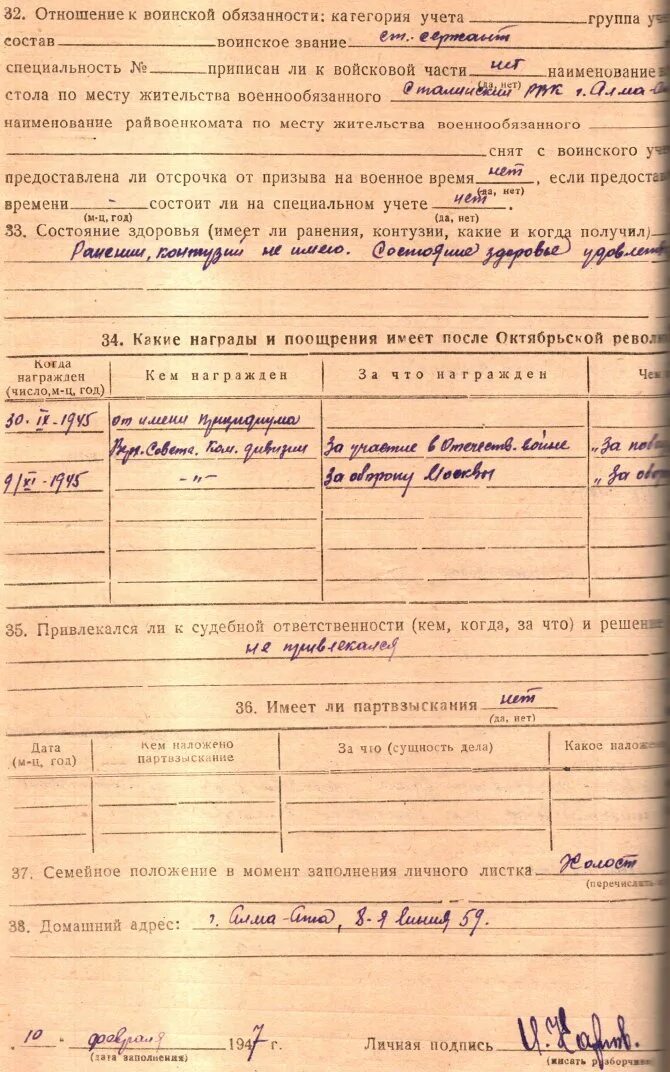 32. Отношение к воинской обязанности: категория учета ______ группа уче
состав ______ воинское звание ст. сержант
специальность № ______ приписан ли к войсковой части нет наименование
(да, нет)
стола по месту жительства военнообязанного Сталинский РВК г. Алма-А
наименование райвоенкомата по месту жительства военнообязанного ______
______ снят с воинского уче
предоставлена ли отсрочка от призыва на военное время нет, если предостав
(да, нет)
времени - состоит ли на специальном учете нет.
(м-ц, год) (да, нет)
33. Состояние здоровья (имеет ли ранения, контузии, какие и когда получил)
Ранении, контузий не имею. Состояние здоровье удовлет
34. Какие награды и поощрения имеет после Октябрьской револю
Когда награжден (число, м-ц, год) Кем награжден За что награжден Чем
30. IX-1945 от имени Призидиума
Верх. Совета. Ком. дивизии За участие в Отечеств. войне „За поб
9/XI-1945 -„- За оборону Москвы „За обор
35. Привлекался ли к судебной ответственности (кем, когда, за что) и решение
не привлекался
36. Имеет ли партвзыскания нет
(да, нет)
Дата (м-ц, год) Кем наложено партвзыскание За что (сущность дела) Какое наложе
37. Семейное положение в момент заполнения личного листка Холост
(перечислить
38. Домашний адрес: г. Алма-Ата, 8-я линия 59.
„10" февраля 1947 г. Личная подпись
(дата заполнения) (писать разборчиво